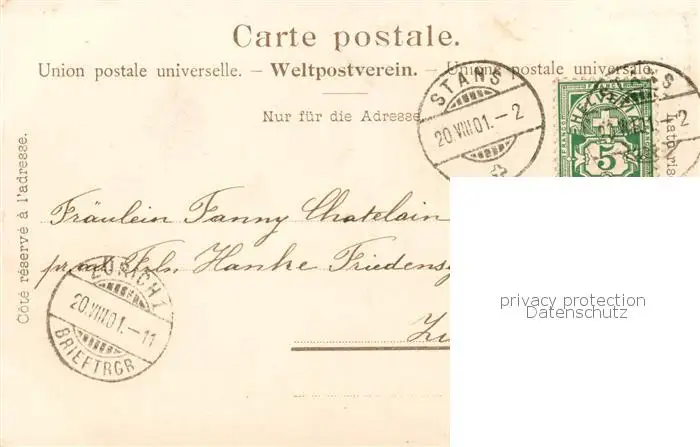 Carte postale.
Union postale universelle. – Weltpostverein. – Unione postale universale.
Nur für die Adresse.
Côté réservé à l'adresse.
STANS
20.VIII.01.–2
HELVETIA
5
FRANCO
Fräulein Fanny Chatelain
Frls. Hanke
ZÜRICH 1
20.VIII.01.–11
BRIEFTRGR
privacy protection
Datenschutz